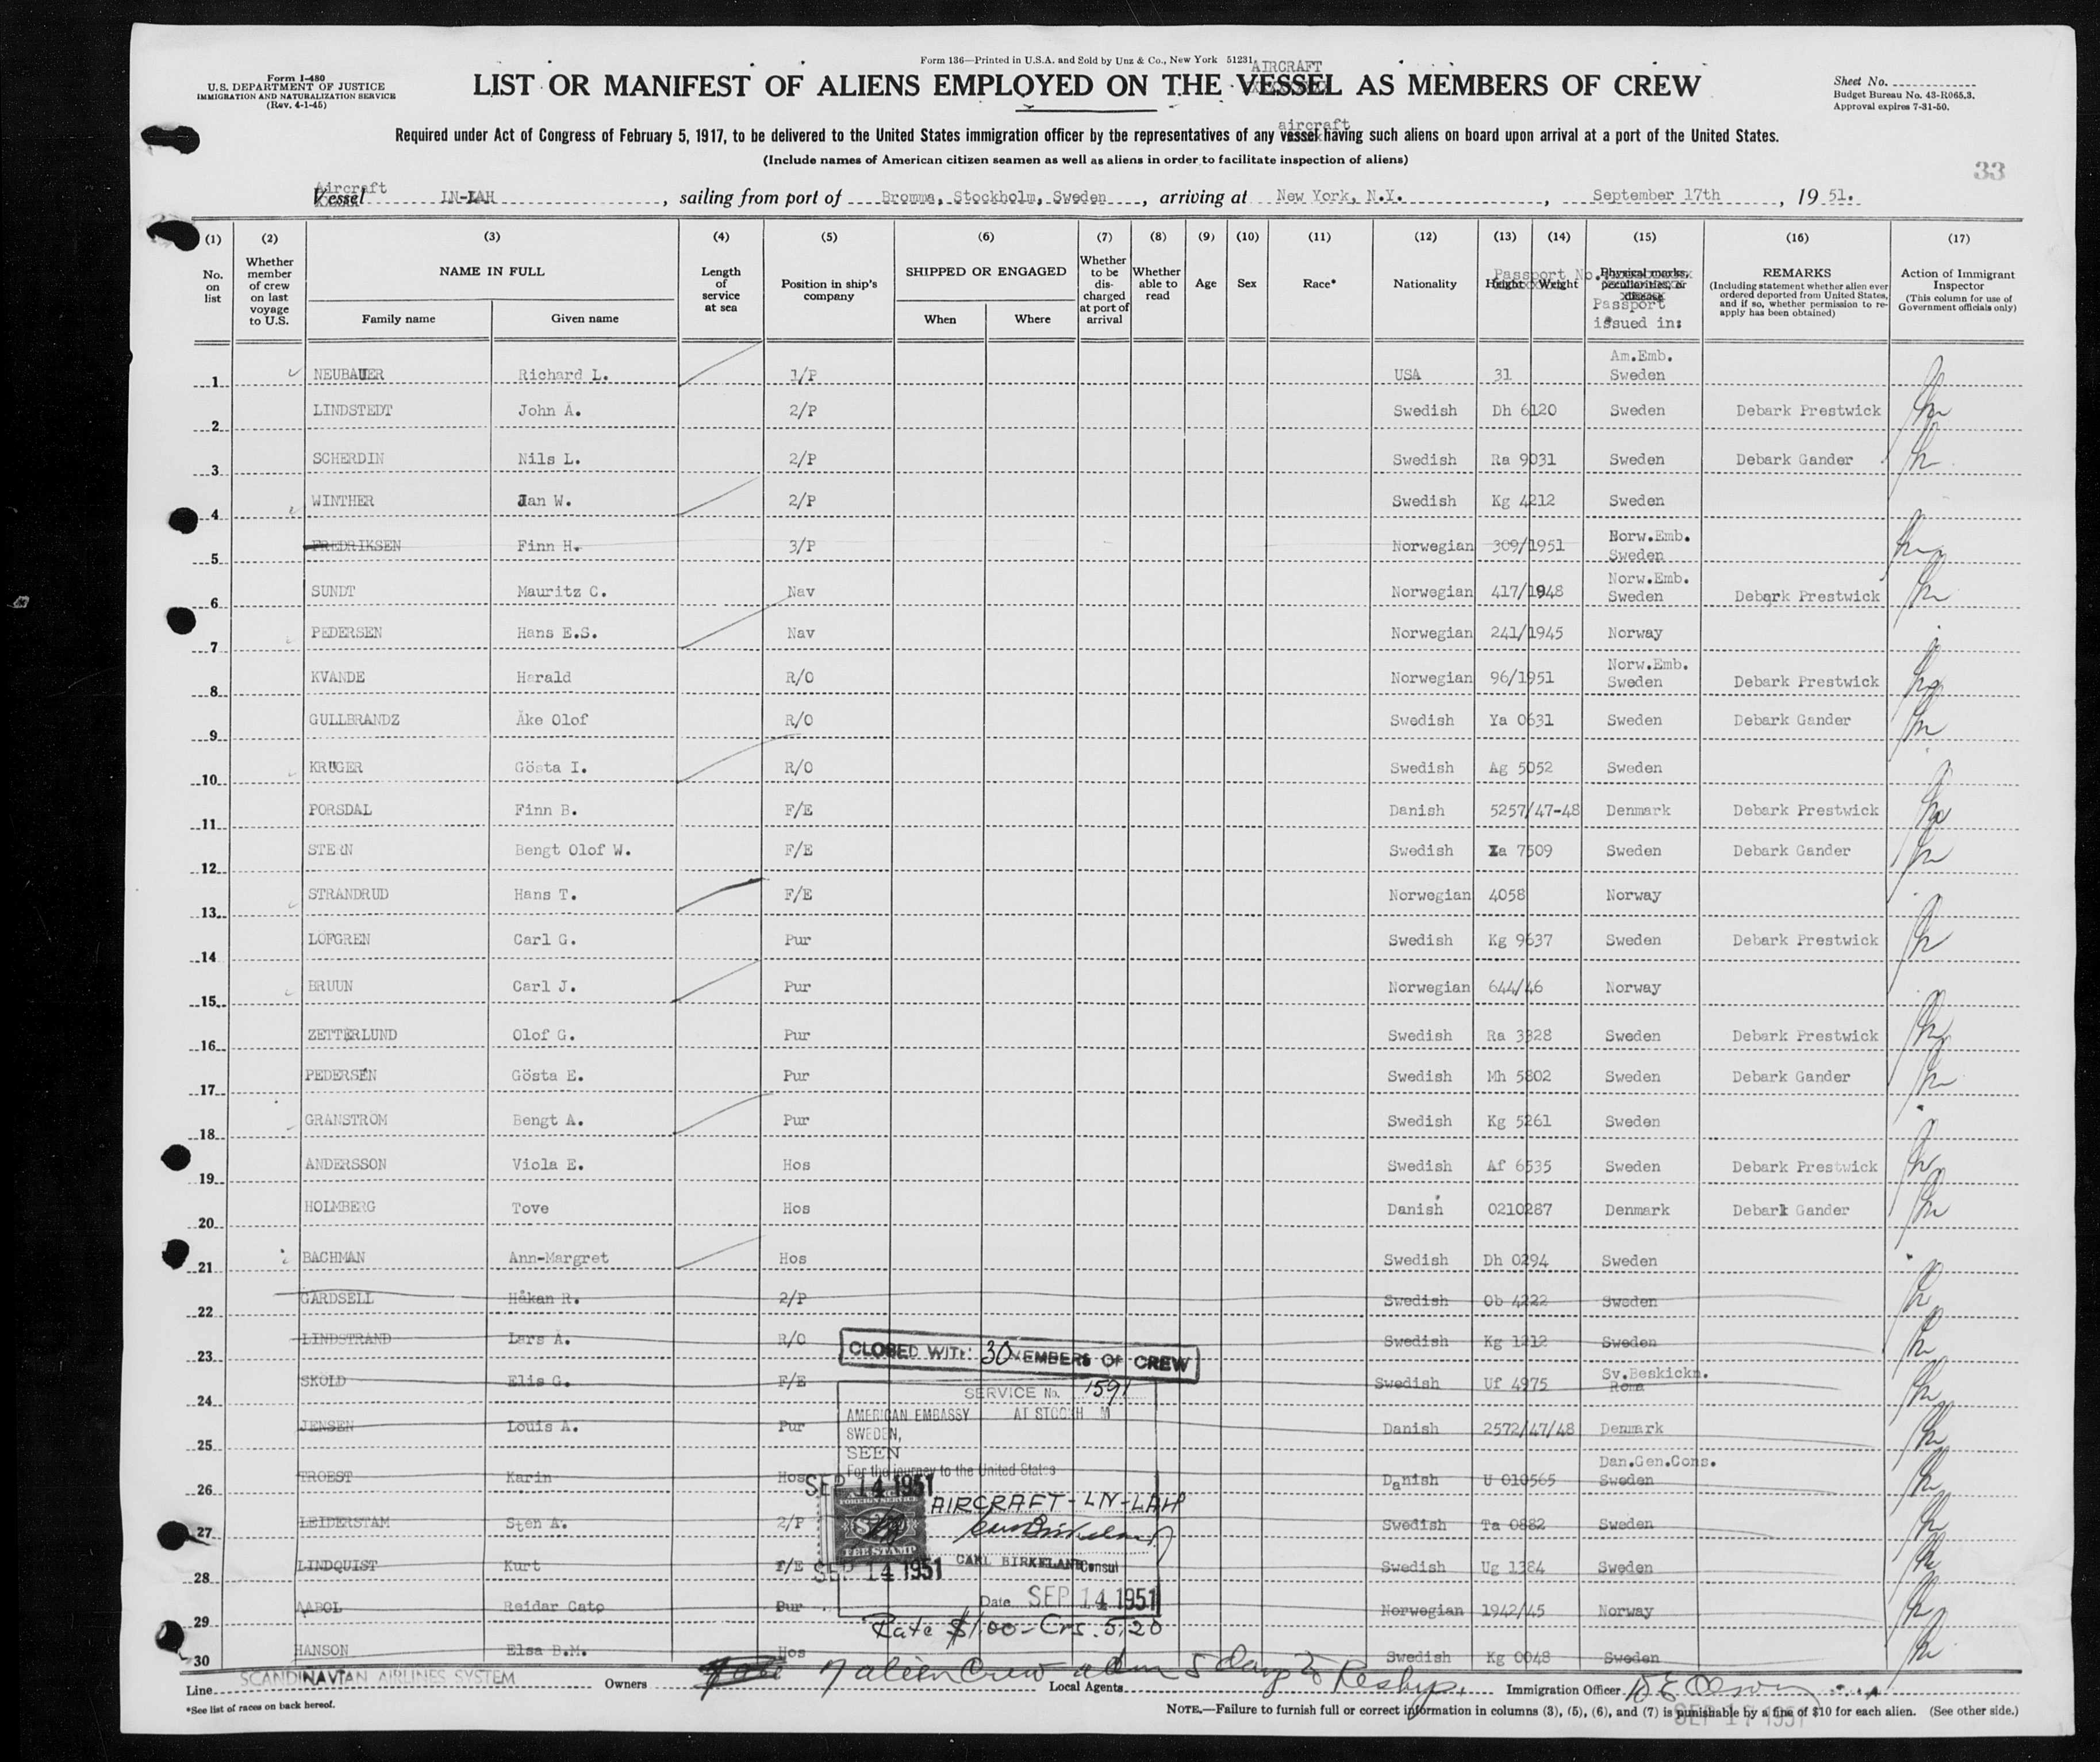 Form 136—Printed in U.S.A. and Sold by Unz & Co., New York 51231
Form I-480
U.S. DEPARTMENT OF JUSTICE
IMMIGRATION AND NATURALIZATION SERVICE
(Rev. 4-1-45)
AIRCRAFT
LIST OR MANIFEST OF ALIENS EMPLOYED ON THE VESSEL AS MEMBERS OF CREW
Sheet No.
Budget Bureau No. 43-R065.3.
Approval expires 7-31-50.
aircraft
Required under Act of Congress of February 5, 1917, to be delivered to the United States immigration officer by the representatives of any vessel having such aliens on board upon arrival at a port of the United States.
(Include names of American citizen seamen as well as aliens in order to facilitate inspection of aliens)
33
Aircraft
Vessel LN-LAH, sailing from port of Bromma, Stockholm, Sweden, arriving at New York, N.Y., September 17th, 19 51.
(1) (2) (3) (4) (5) (6) (7) (8) (9) (10) (11) (12) (13) (14) (15) (16) (17)
No. on list
Whether member of crew on last voyage to U.S.
NAME IN FULL
Family name Given name
Length of service at sea
Position in ship's company
SHIPPED OR ENGAGED
When Where
Whether to be discharged at port of arrival
Whether able to read
Age
Sex
Race*
Nationality
Passport No.
Height Weight
Physical marks, peculiarities, or disease
Passport issued in:
REMARKS
(Including statement whether alien ever ordered deported from United States, and if so, whether permission to reapply has been obtained)
Action of Immigrant Inspector
(This column for use of Government officials only)
1 NEUBAUER Richard L. 1/P USA 31 Am.Emb. Sweden
2 LINDSTEDT John A. 2/P Swedish Dh 6120 Sweden Debark Prestwick
3 SCHERDIN Nils L. 2/P Swedish Ra 9031 Sweden Debark Gander
4 WINTHER Jan W. 2/P Swedish Kg 4212 Sweden
5 FREDRIKSEN Finn H. 3/P Norwegian 309/1951 Norw.Emb. Sweden
6 SUNDT Mauritz C. Nav Norwegian 417/1948 Norw.Emb. Sweden Debark Prestwick
7 PEDERSEN Hans E.S. Nav Norwegian 241/1945 Norway
8 KVANDE Harald R/O Norwegian 96/1951 Norw.Emb. Sweden Debark Prestwick
9 GULLBRANDZ Åke Olof R/O Swedish Ya 0631 Sweden Debark Gander
10 KRUGER Gösta I. R/O Swedish Ag 5052 Sweden
11 PORSDAL Finn B. F/E Danish 5257/47-48 Denmark Debark Prestwick
12 STERN Bengt Olof W. F/E Swedish Xa 7509 Sweden Debark Gander
13 STRANDRUD Hans T. F/E Norwegian 4058 Norway
14 LÖFGREN Carl G. Pur Swedish Kg 9637 Sweden Debark Prestwick
15 BRUUN Carl J. Pur Norwegian 644/46 Norway
16 ZETTERLUND Olof G. Pur Swedish Ra 3328 Sweden Debark Prestwick
17 PEDERSEN Gösta E. Pur Swedish Mh 5802 Sweden Debark Gander
18 GRANSTRÖM Bengt A. Pur Swedish Kg 5261 Sweden
19 ANDERSSON Viola E. Hos Swedish Af 6535 Sweden Debark Prestwick
20 HOLMBERG Tove Hos Danish 0210287 Denmark Debark Gander
21 BACHMAN Ann-Margret Hos Swedish Dh 0294 Sweden
22 GARDSELL Håkan R. 2/P Swedish Ob 4222 Sweden
23 LINDSTRAND Lars A. R/O Swedish Kg 1212 Sweden
24 SKÖLD Elis G. F/E Swedish Uf 4975 Sv.Beskickn. Roma
25 JENSEN Louis A. Pur Danish 2572/47/48 Denmark
26 TROEST Karin Hos Danish U 010565 Dan.Gen.Cons. Sweden
27 LEIDERSTAM Sten A. 2/P Swedish Ta 0882 Sweden
28 LINDQUIST Kurt F/E Swedish Ug 1384 Sweden
29 AABOL Reidar Cato Pur Norwegian 1942/45 Norway
30 HANSON Elsa B.M. Hos Swedish Kg 0048 Sweden
CLOSED WITH 30 MEMBERS OF CREW
SERVICE No. 1591
AMERICAN EMBASSY AT STOCKH M
SWEDEN,
SEEN
For the journey to the United States
SEP 14 1951
FOREIGN SERVICE
FEE STAMP
AIRCRAFT - LN-LAH
CARL BIRKELAND Consul
SEP 14 1951
Date SEP 14 1951
Rate $1.00 - Crs. 5,20
7 alien Crew adm 5 days to Reship.
Line SCANDINAVIAN AIRLINES SYSTEM Owners Local Agents Immigration Officer D E Olson
SEP 17 1951
*See list of races on back hereof.
NOTE.—Failure to furnish full or correct information in columns (3), (5), (6), and (7) is punishable by a fine of $10 for each alien. (See other side.)